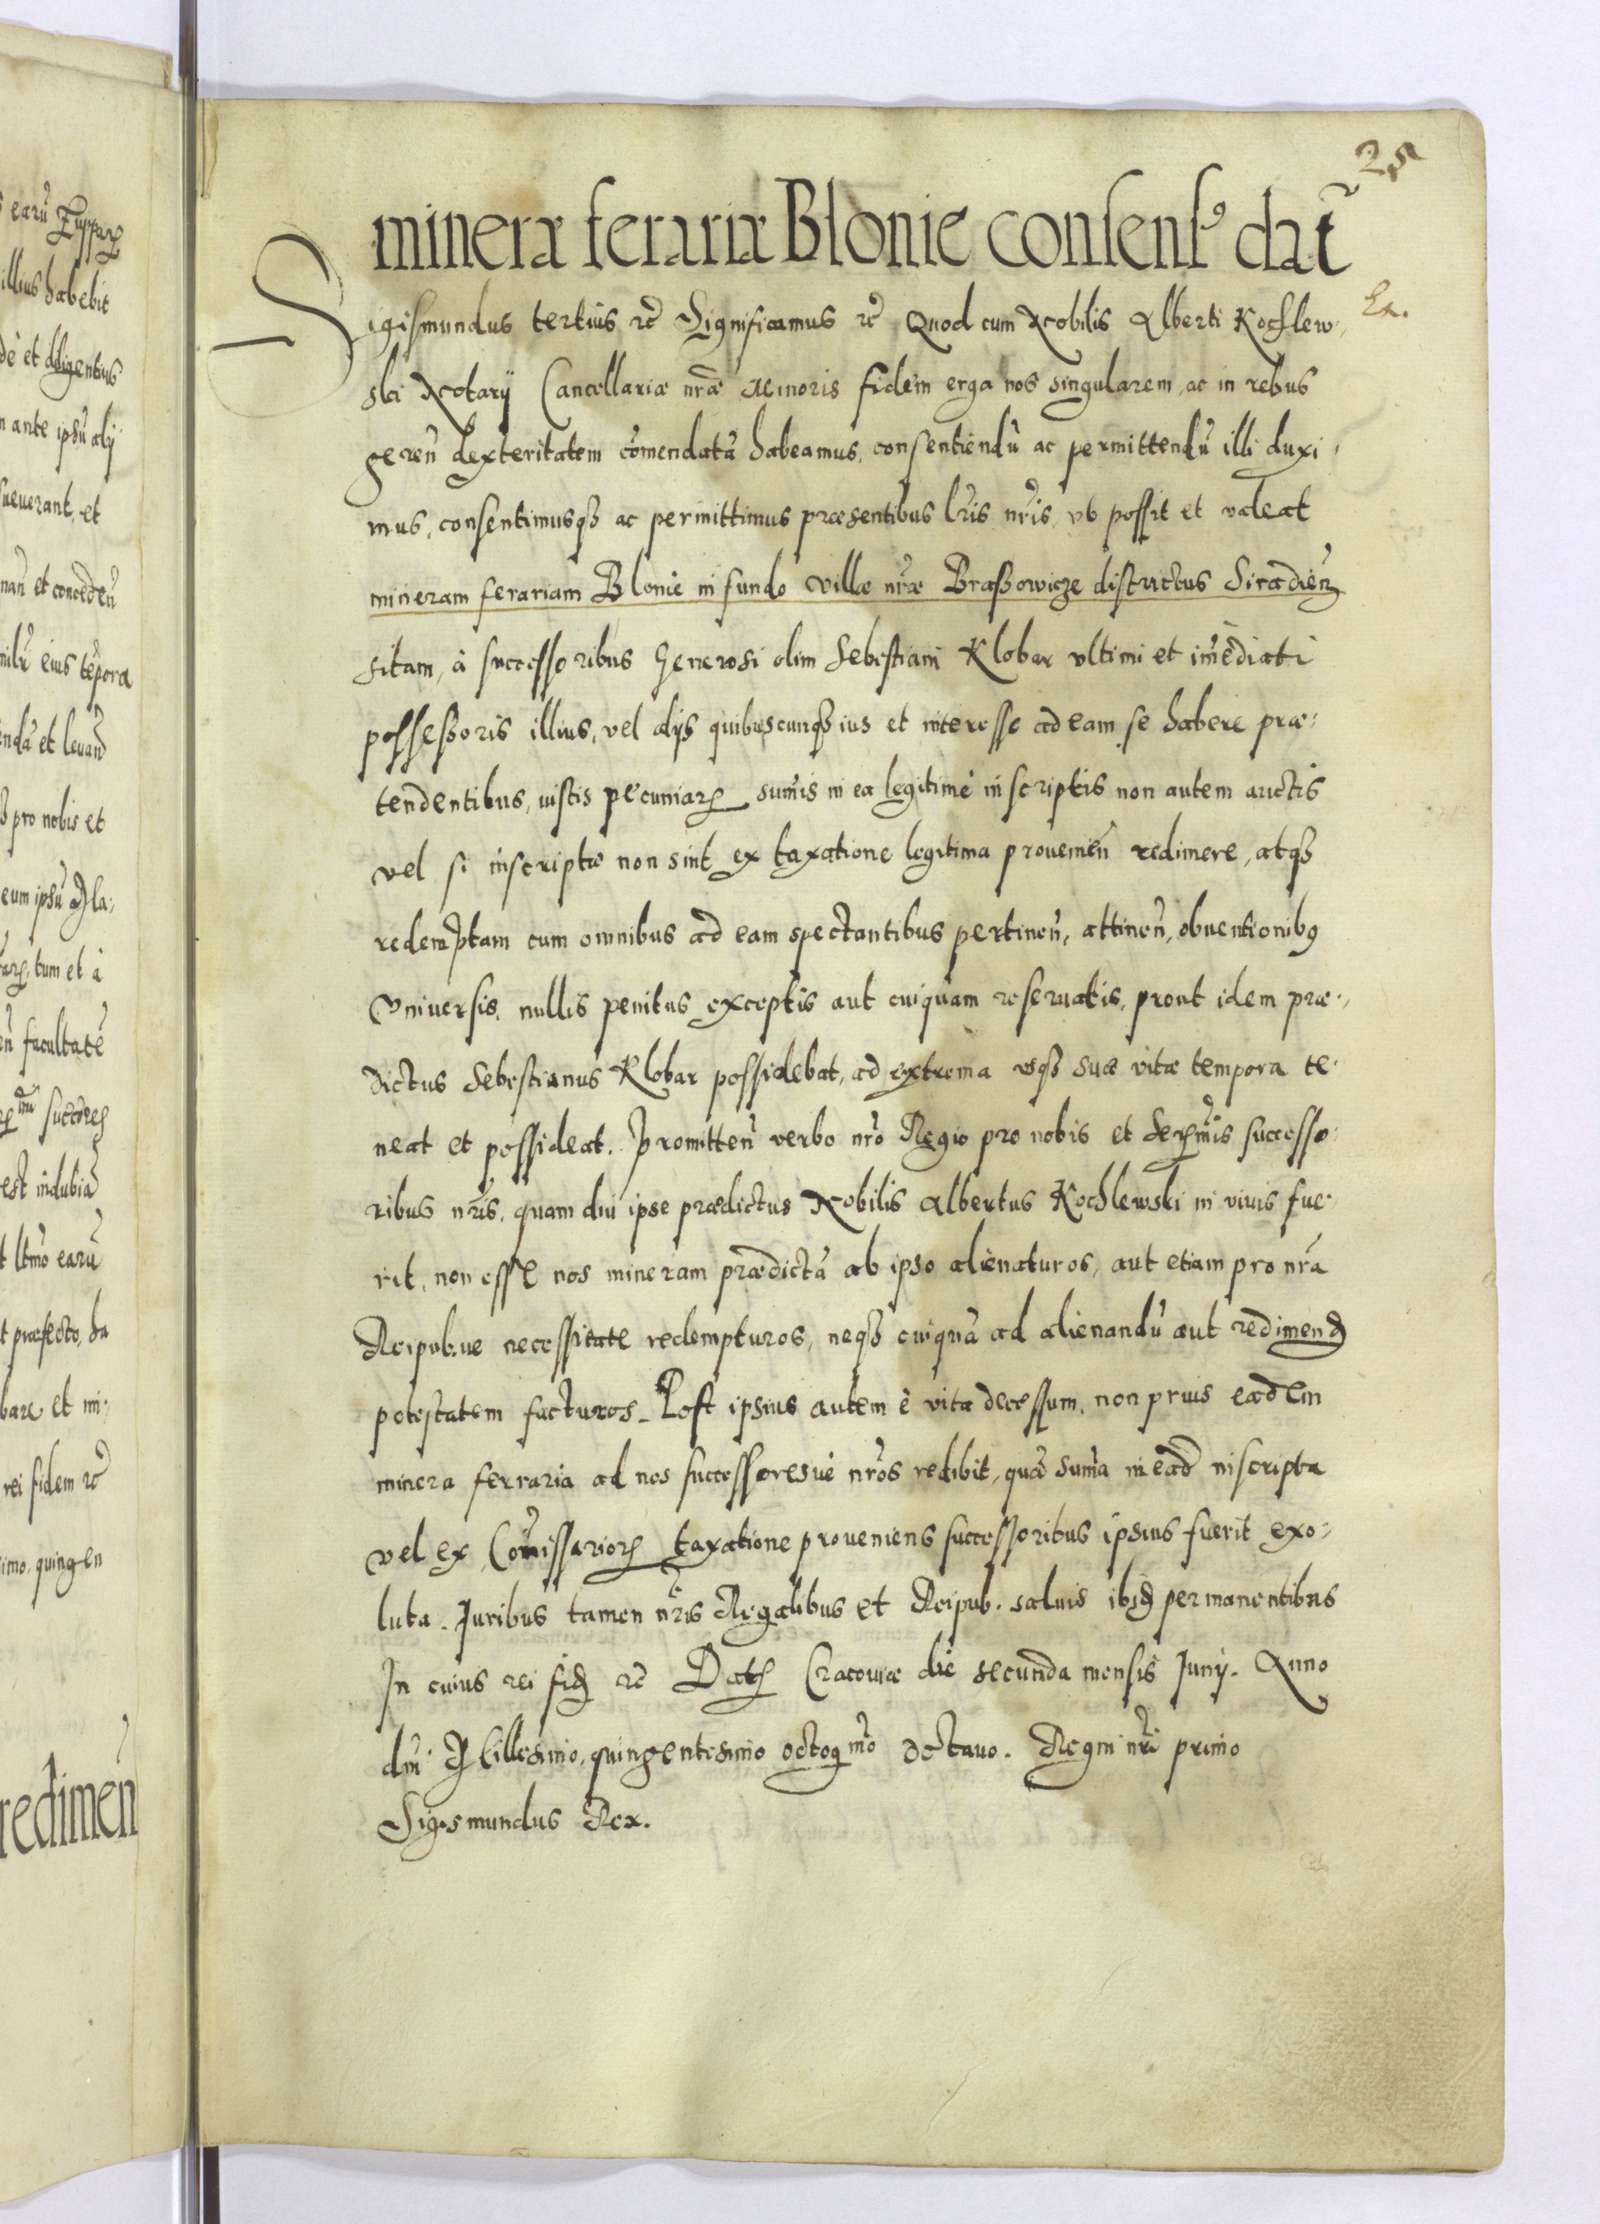 earũ Zuppar
illius habebit
dè et diligentius
n ante ipsũ alij
sueuerant, et
nan̄ et conceden̄
eius tẽpora
endã et leuand
pro nobis et
eum ipsũ
tum et à
facultatẽ
succores
est indubia
earũ
t præfecto, ha
bare et in:
rei fidem rc̃
imo. quingen
redimen̄
25
mineræ ferariæ Blonie consens9 dat̃
Ex.
Sigismundus tertius rc̃ Significamus rc̃ Quod cum Nobilis Alberti Kochlew:
ski Notarij Cancellariæ nr̃æ Minoris fidem erga nos singularem, ac in rebus
geren̄ dexteritatem com̃endatã habeamus, consentiendũ ac permittendũ illi duxi:
mus, consentimusqȝ ac permittimus præsentibus lr̃is nr̃is, vt possit et valeat
mineram ferariam Blonie in fundo villæ nr̃æ Braszowicze districtus Siradien̄
sitam, à successoribus Generosi olim Sebestiani Klobar vltimi et im̃ediati
possessoris illius, vel alijs quibuscunqȝ ius et interesse ad eam se habere præ:
tendentibus, iustis pecuniarꝝ sum̃is in ea legitimè inscriptis non autem auctis
vel si inscriptæ non sint ex taxatione legitima prouenien̄ redimere, atqȝ
redemptam cum omnibus ad eam spectantibus pertinen̄, attinen̄, obuentionib9
Vniuersis, nullis penitus exceptis aut cuiquam reseruatis, prout idem præ:
dictus Sebestianus Klobar possidebat, ad extrema vsqȝ suæ vitæ tempora te:
neat et possideat. Promitten̄ verbo nr̃o Regio pro nobis et Serꝫmis successo:
ribus nr̃is, quam diu ipse prædictus Nobilis Albertus Kochlewski in viuis fue:
rit, non esse nos mineram prædictã ab ipso alienaturos, aut etiam pro nr̃a
Reipub.ue necessitate redempturos, neqȝ cuiquã ad alienandũ aut redimendꝫ
potestatem facturos. Post ipsius autem è vita decessum, non prius eadem
minera ferraria ad nos successoresuè nr̃os redibit, quã sum̃a in eãd inscripta
vel ex Com̃issariorꝝ taxatione proueniens successoribus ipsius fuerit exo:
luta. Iuribus tamen nr̃is Regalibus et Reipub. saluis ibidꝫ permanentibus
In cuius rei fidꝫ rc̃ Datꝫ Cracouiæ die secunda mensis Iunij. Anno
dn̄i Millesimo, quingentesimo octogmo octauo. Regni nr̃i primo
Sigismundus Rex.